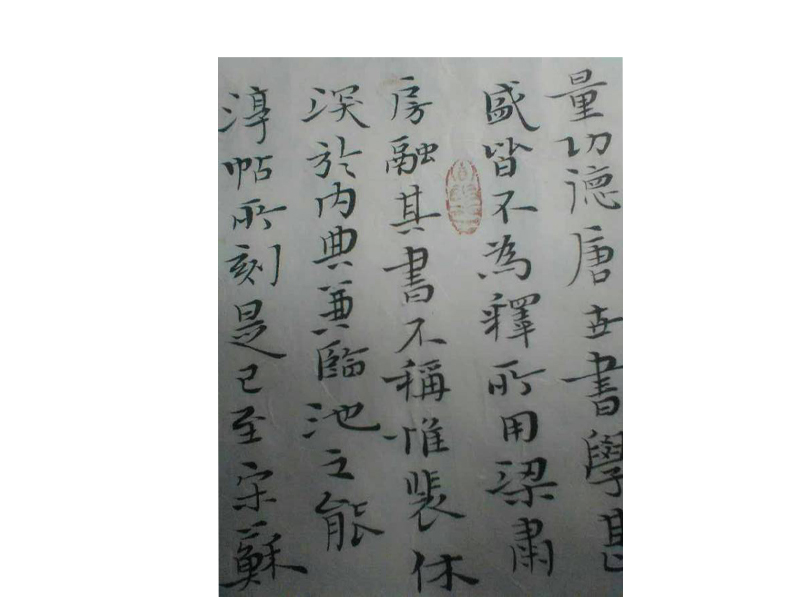 量功德唐世書學甚
盛皆不為釋所用梁肅
房融其書不稱惟裴休
深於内典兼臨池之能
淳帖所刻是已至宋蘇